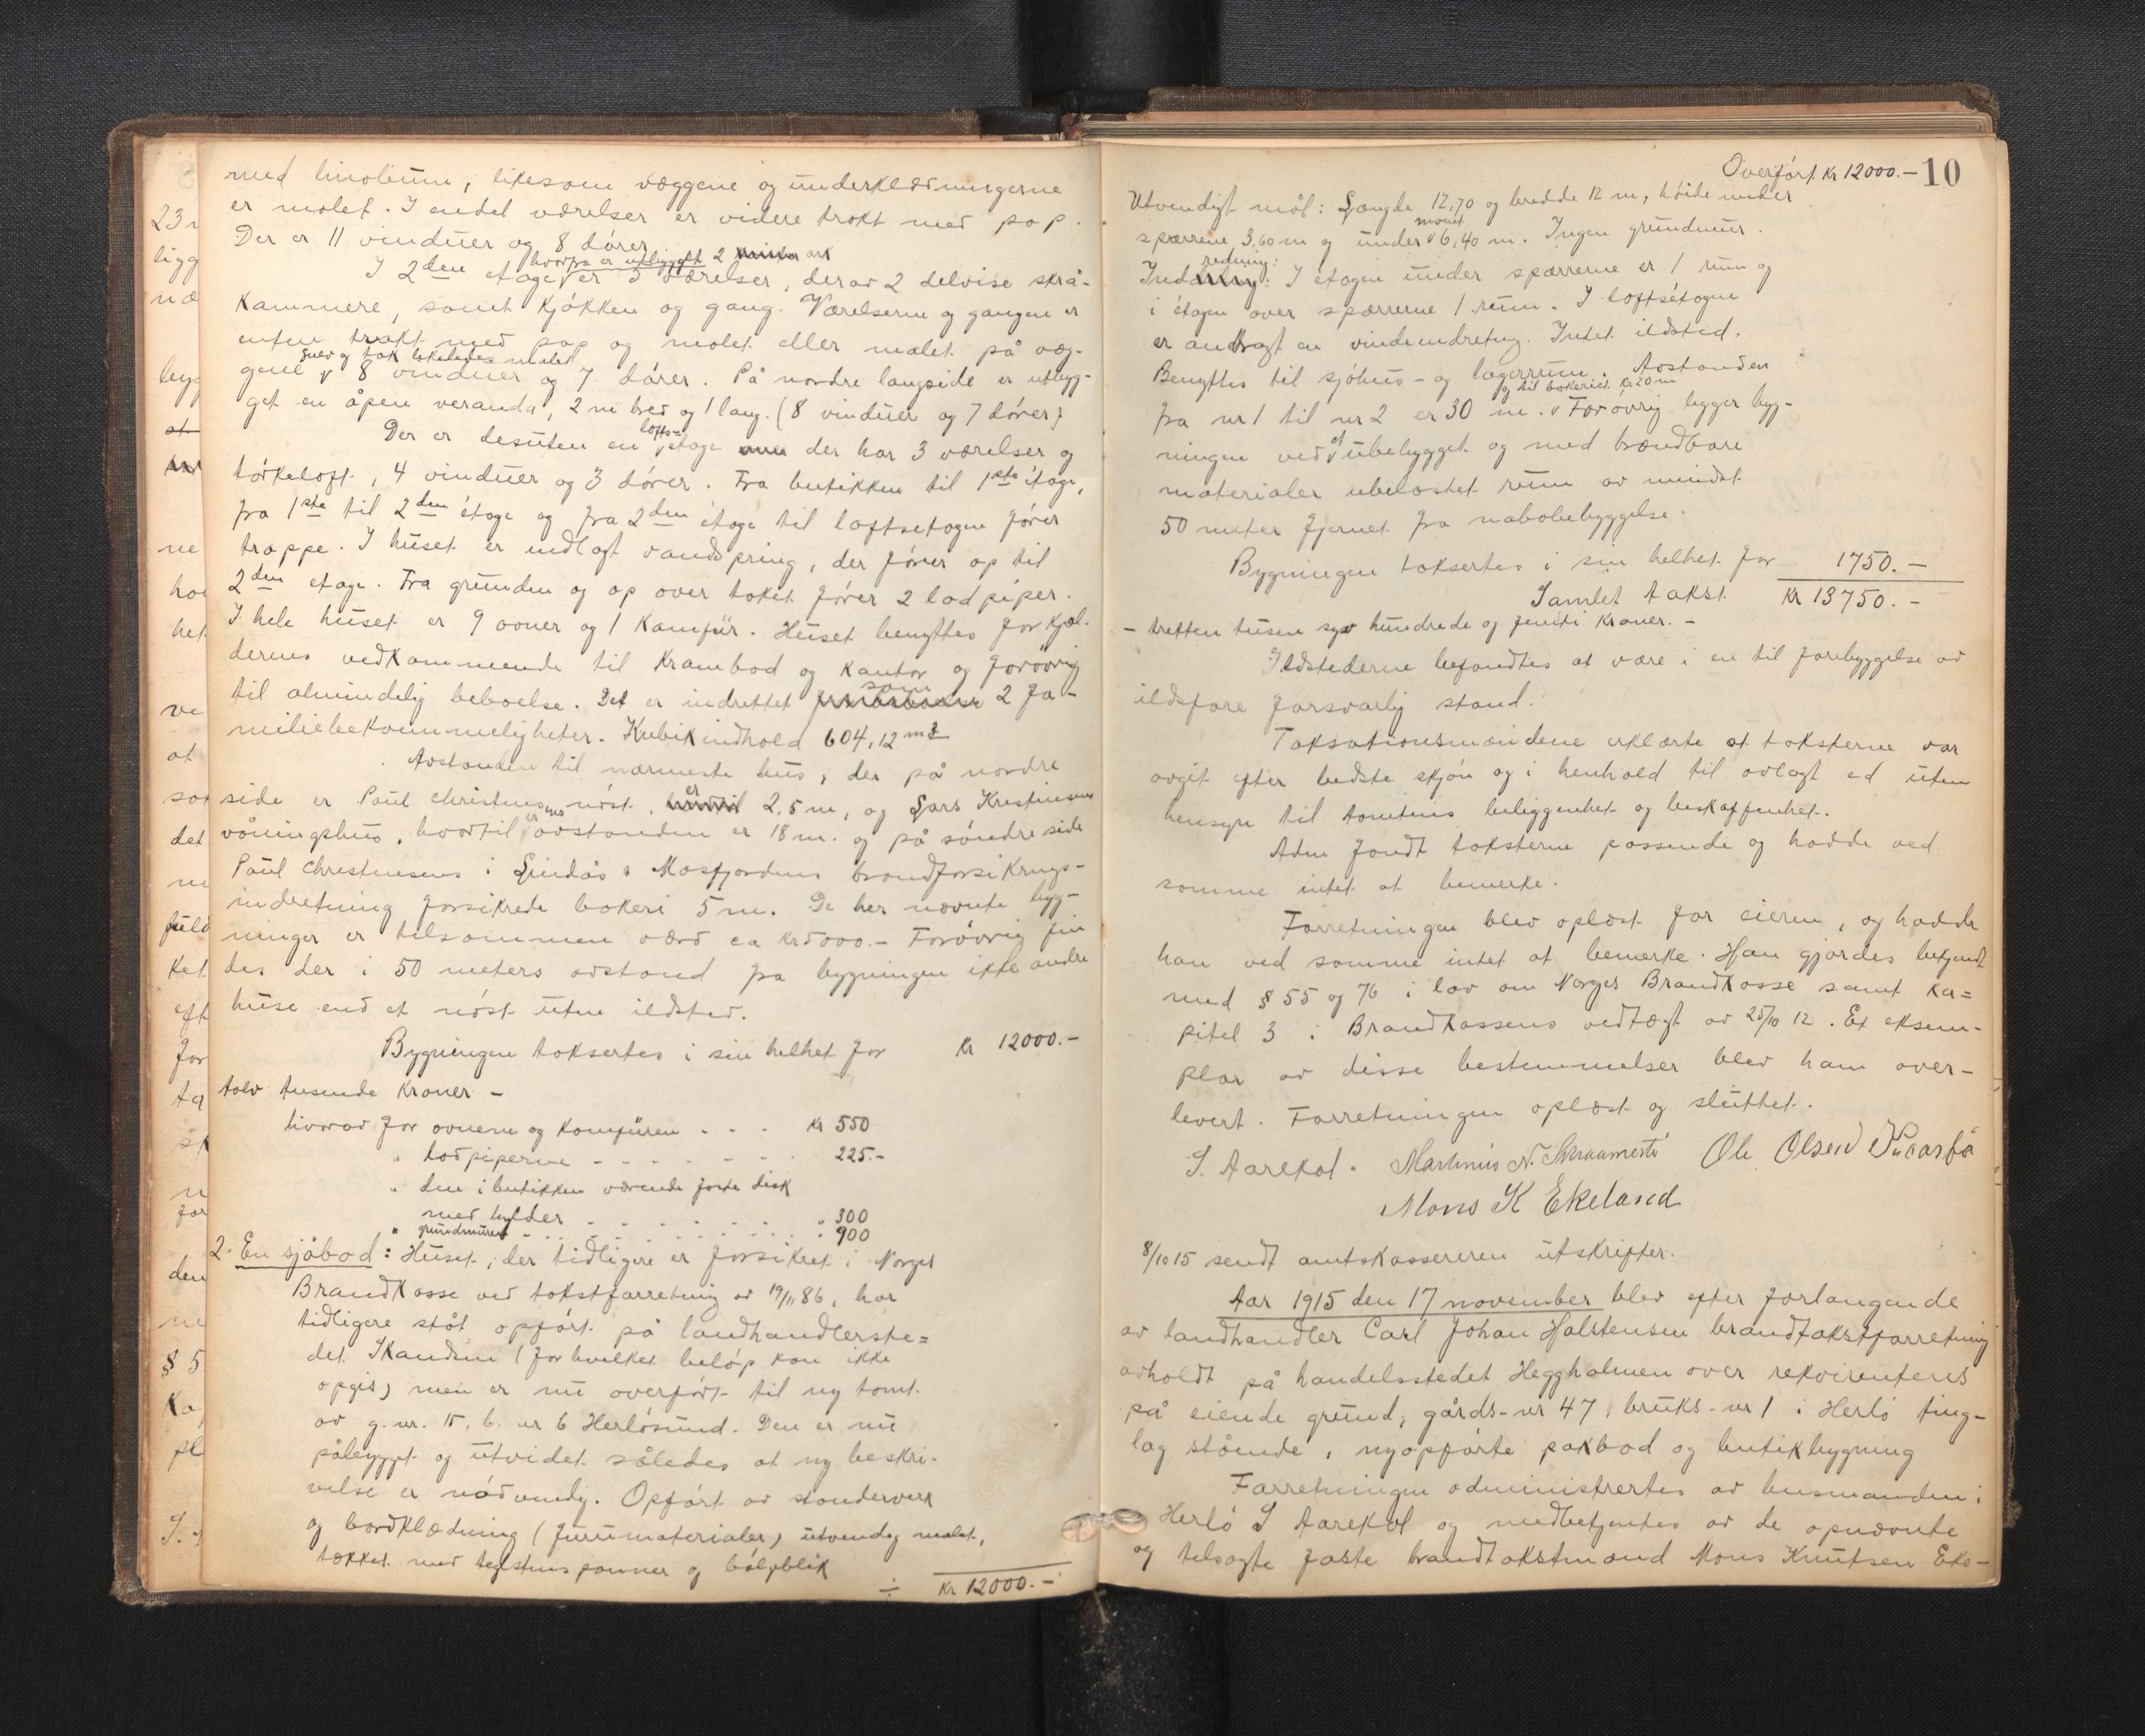 med linoleum, likesom væggene og underklædningerne
er malet. I endel værelser er videre trukt med pap.
Der er 11 vinduer og 8 dører
hvorfra er utbygget 2 ark
I 2den etage er 5 værelser, derav 2 delvise skrå-
kammere, samt kjøkken og gang. Værelserne og gangen er
enten trukt med pap og malet eller malet på væg-
gulv og tak likeledes malet
gene 8 vinduer og 7 dører. På nordre langside er utbyg-
get en åpen veranda, 2 m bred og 1 lang. (8 vinduer og 7 dører)
Der er desuten en lofts- etage der har 3 værelser og
tørkeloft, 4 vinduer og 3 dører. Fra butikken til 1ste étage,
fra 1ste til 2den étage og fra 2den étage til loftsetagen fører
trappe. I huset er indlagt vandspring, der fører op til
2den etage. Fra grunden og op over taket fører 2 lodpiper.
I hele huset er 9 ovner og 1 Komfür. Huset benyttes for kjæl-
derens vedkommende til Krambod og Kontor og forøvrig
til almindelig beboelse. Det er indrettet som 2 Fa-
miliebekvemmeligheter. Kubikindhold 604,12 m3
Avstanden til nærmeste hus, der på nordre
side er Paul Christensens nøst, er 2,5 m, og Lars Kristensens
våningshus, hvortil avstanden er 18 m. og på søndre side
Paul Christensens i Lindås & Masfjordens brandforsikrings-
indretning forsikrede bakeri 5 m. De her nævnte byg-
ninger er tilsammen værd ca Kr 5000.- Forøvrig fin
des der i 50 meters avstand fra bygningen ikke andre
huse end et nøst uten ildsted.
Bygningen taksertes i sin helhet for Kr 12000.-
tolv tusende Kroner -
hvorav for ovnene og Komfüren - - - Kr 550
" lodpiperne - - - - - - 225.-
" den i butikken værende faste disk
med hylder - - - - - - " 300
" grundmuren - - - - - - " 900
2. En sjøbod: Huset, der tidligere er forsikret i Norges
Brandkasse ved takstforretning av 19/11 86, har
tidligere stått opført på landhandlerste=
det Skandsen (for hvilket beløp kan ikke
opgis) men er nu overført til ny tomt
av g.nr. 15, b. nr 6 Herløsund. Den er nu
påbygget og utvidet således at ny beskri-
velse er nødvendig. Opført av stenderverk
og bordklædning (furumaterialer) utvendig malet,
tækket med teglstenspanner og bølgeblik
÷ Kr 12000.-
Overført Kr 12000.- 10
Utvendigt mål: Længde 12,70 og bredde 12 m, høide under
spærrene 3,60 m og under mønet 6,40 m. Ingen grundmur.
Indredning: I étagen under spærrerne er 1 rum og
i étagen over spærrerne 1 rum. I loftsétagen
er anbragt en vindeindretng. Intet ildsted.
Benyttes til sjøhus- og lagerrum. Avstanden
og til bakeriet Kr 20 m
fra nr 1 til nr 2 er 30 m. Forøvrig ligger byg-
ningen ved et ubebygget og med brændbare
materialer ubelastet rum av mindst
50 meter fjernet fra nabobebyggelse.
Bygningen taksertes i sin helhet for 1750.-
Samlet takst Kr 13750.-
- tretten tusen syv hundrede og femti Kroner. -
Ildstederne befandtes at være i en til forebyggelse av
ildsfare forsvarlig stand.
Taksationsmændene erklærte at taksterne var
avgit efter bedste skjøn og i henhold til avlagt ed uten
hensyn til tomtens beliggenhet og beskaffenhet.
Adm fandt taksterne passende og hadde ved
samme intet at bemerke.
Forretningen blev oplæst for eieren, og hadde
han ved samme intet at bemerke. Han gjordes bekjendt
med § 55 og 76 i lov om Norges Brandkasse samt Ka=
pitel 3 i Brandkassens vedtægt av 25/10 12. Et eksem-
plar av disse bestemmelser blev ham over-
levert. Forretningen oplæst og sluttet.
S. Aarekol. Martinus N. Ole Olsen
Mons K Ekeland
8/10 15 sendt amtskassereren utskrifter.
Aar 1915 den 17 november blev efter forlangende
av landhandler Carl Johan Halstensen brandtakstforretning
avholdt på handelsstedet Heggholmen over rekvirentens
på eiende grund, gårds-nr 47, bruks-nr 1 i Herlø ting-
lag stående, nyopførte pakbod og butikbygning
Forretningen administrertes av lensmanden i
Herlø S Aarekol og medbetjentes av de opnævnte
og tilsagte faste brandtakstmænd Mons Knutsen Eke-